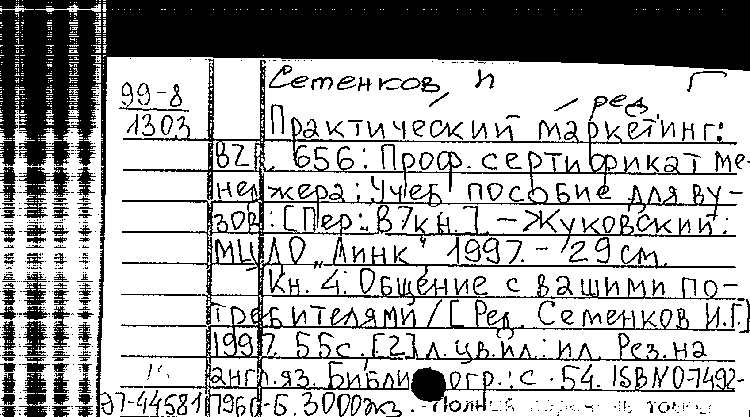 Сетенков, И
99-8
1303
ред
Практический маркетинг:
BZ1. 656: Проф. сертификат ме-
неджера: Учеб пособие для ву-
зов: [Пер.: В 7 кн.]. - Жуковский:
МЦДО „Линк“ 1997. - 29 см.
Кн. 4: Общение с вашими по-
требителями / [Ред. Семенков И.Г.]
1997. 55 с. [2] л. цв. ил.: ил. Рез. на
англ. яз. Библиогр.: с. 54. ISBN 0-7492-
97-44581 796о-Б. 3000 экз.